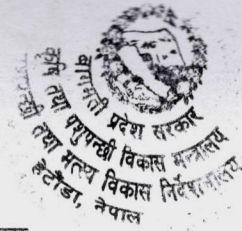 बागमती प्रदेश सरकार
कृषि तथा पशुपन्छी विकास मन्त्रालय
तथा मत्स्य विकास निर्देशनालय
हेटौंडा, नेपाल